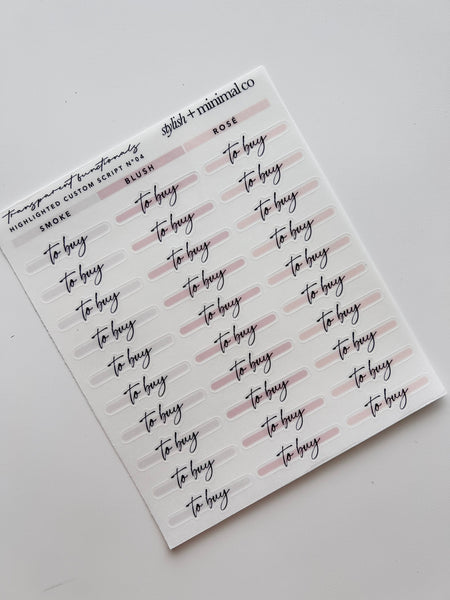 stylish + minimal co
transparent functionals
HIGHLIGHTED CUSTOM SCRIPT Nº04
SMOKE BLUSH ROSÉ
to buy to buy to buy
to buy to buy to buy
to buy to buy to buy
to buy to buy to buy
to buy to buy to buy
to buy to buy to buy
to buy to buy to buy
to buy to buy to buy
to buy to buy to buy
to buy to buy to buy